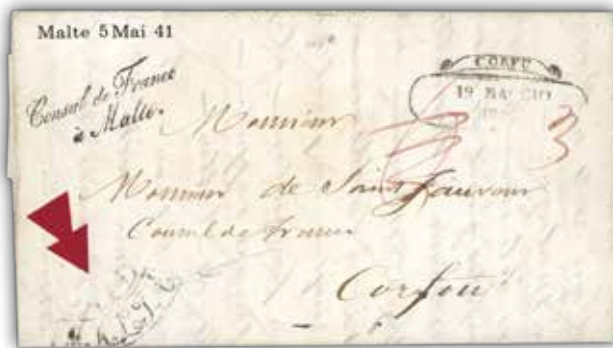 Malte 5 Mai 41
Consul de France
à Malte.
CORFU
19 MAGGIO
3
Monsieur
Monsieur de Saint
Consul de France
Corfou